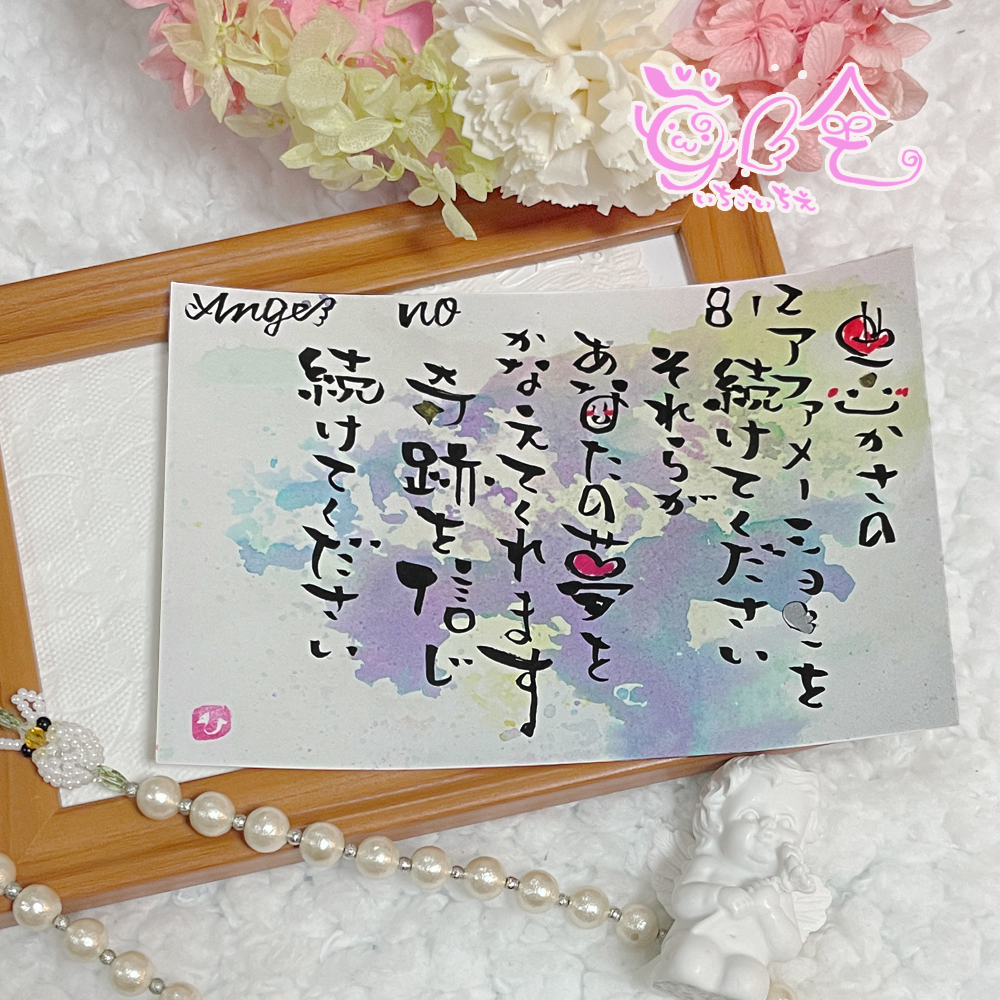 Angel no 812
豊かさの
アファメーションを
続けてください
それらが
あなたの夢を
かなえてくれます
奇跡を信じ
続けてください
いちごいちえ